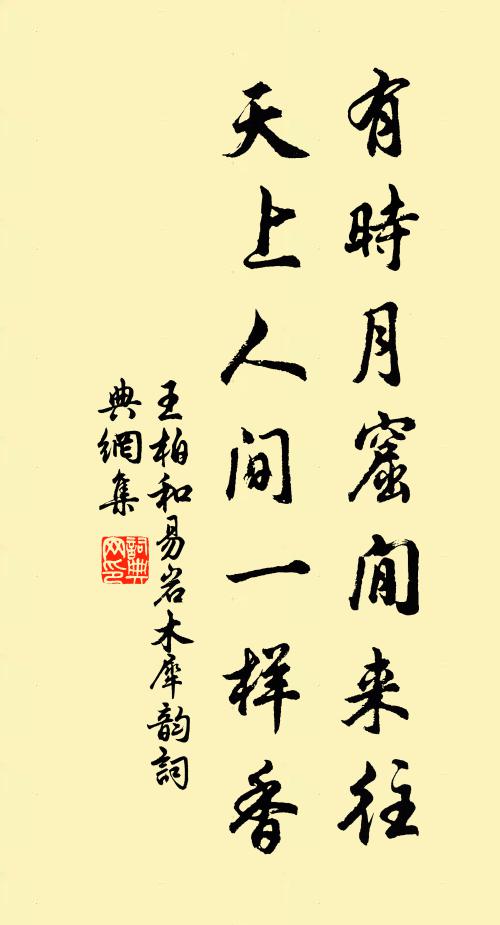 有時月窟间来往
天上人间一样香
王柏和易岩木犀韵詞
典網集
詞典
网印